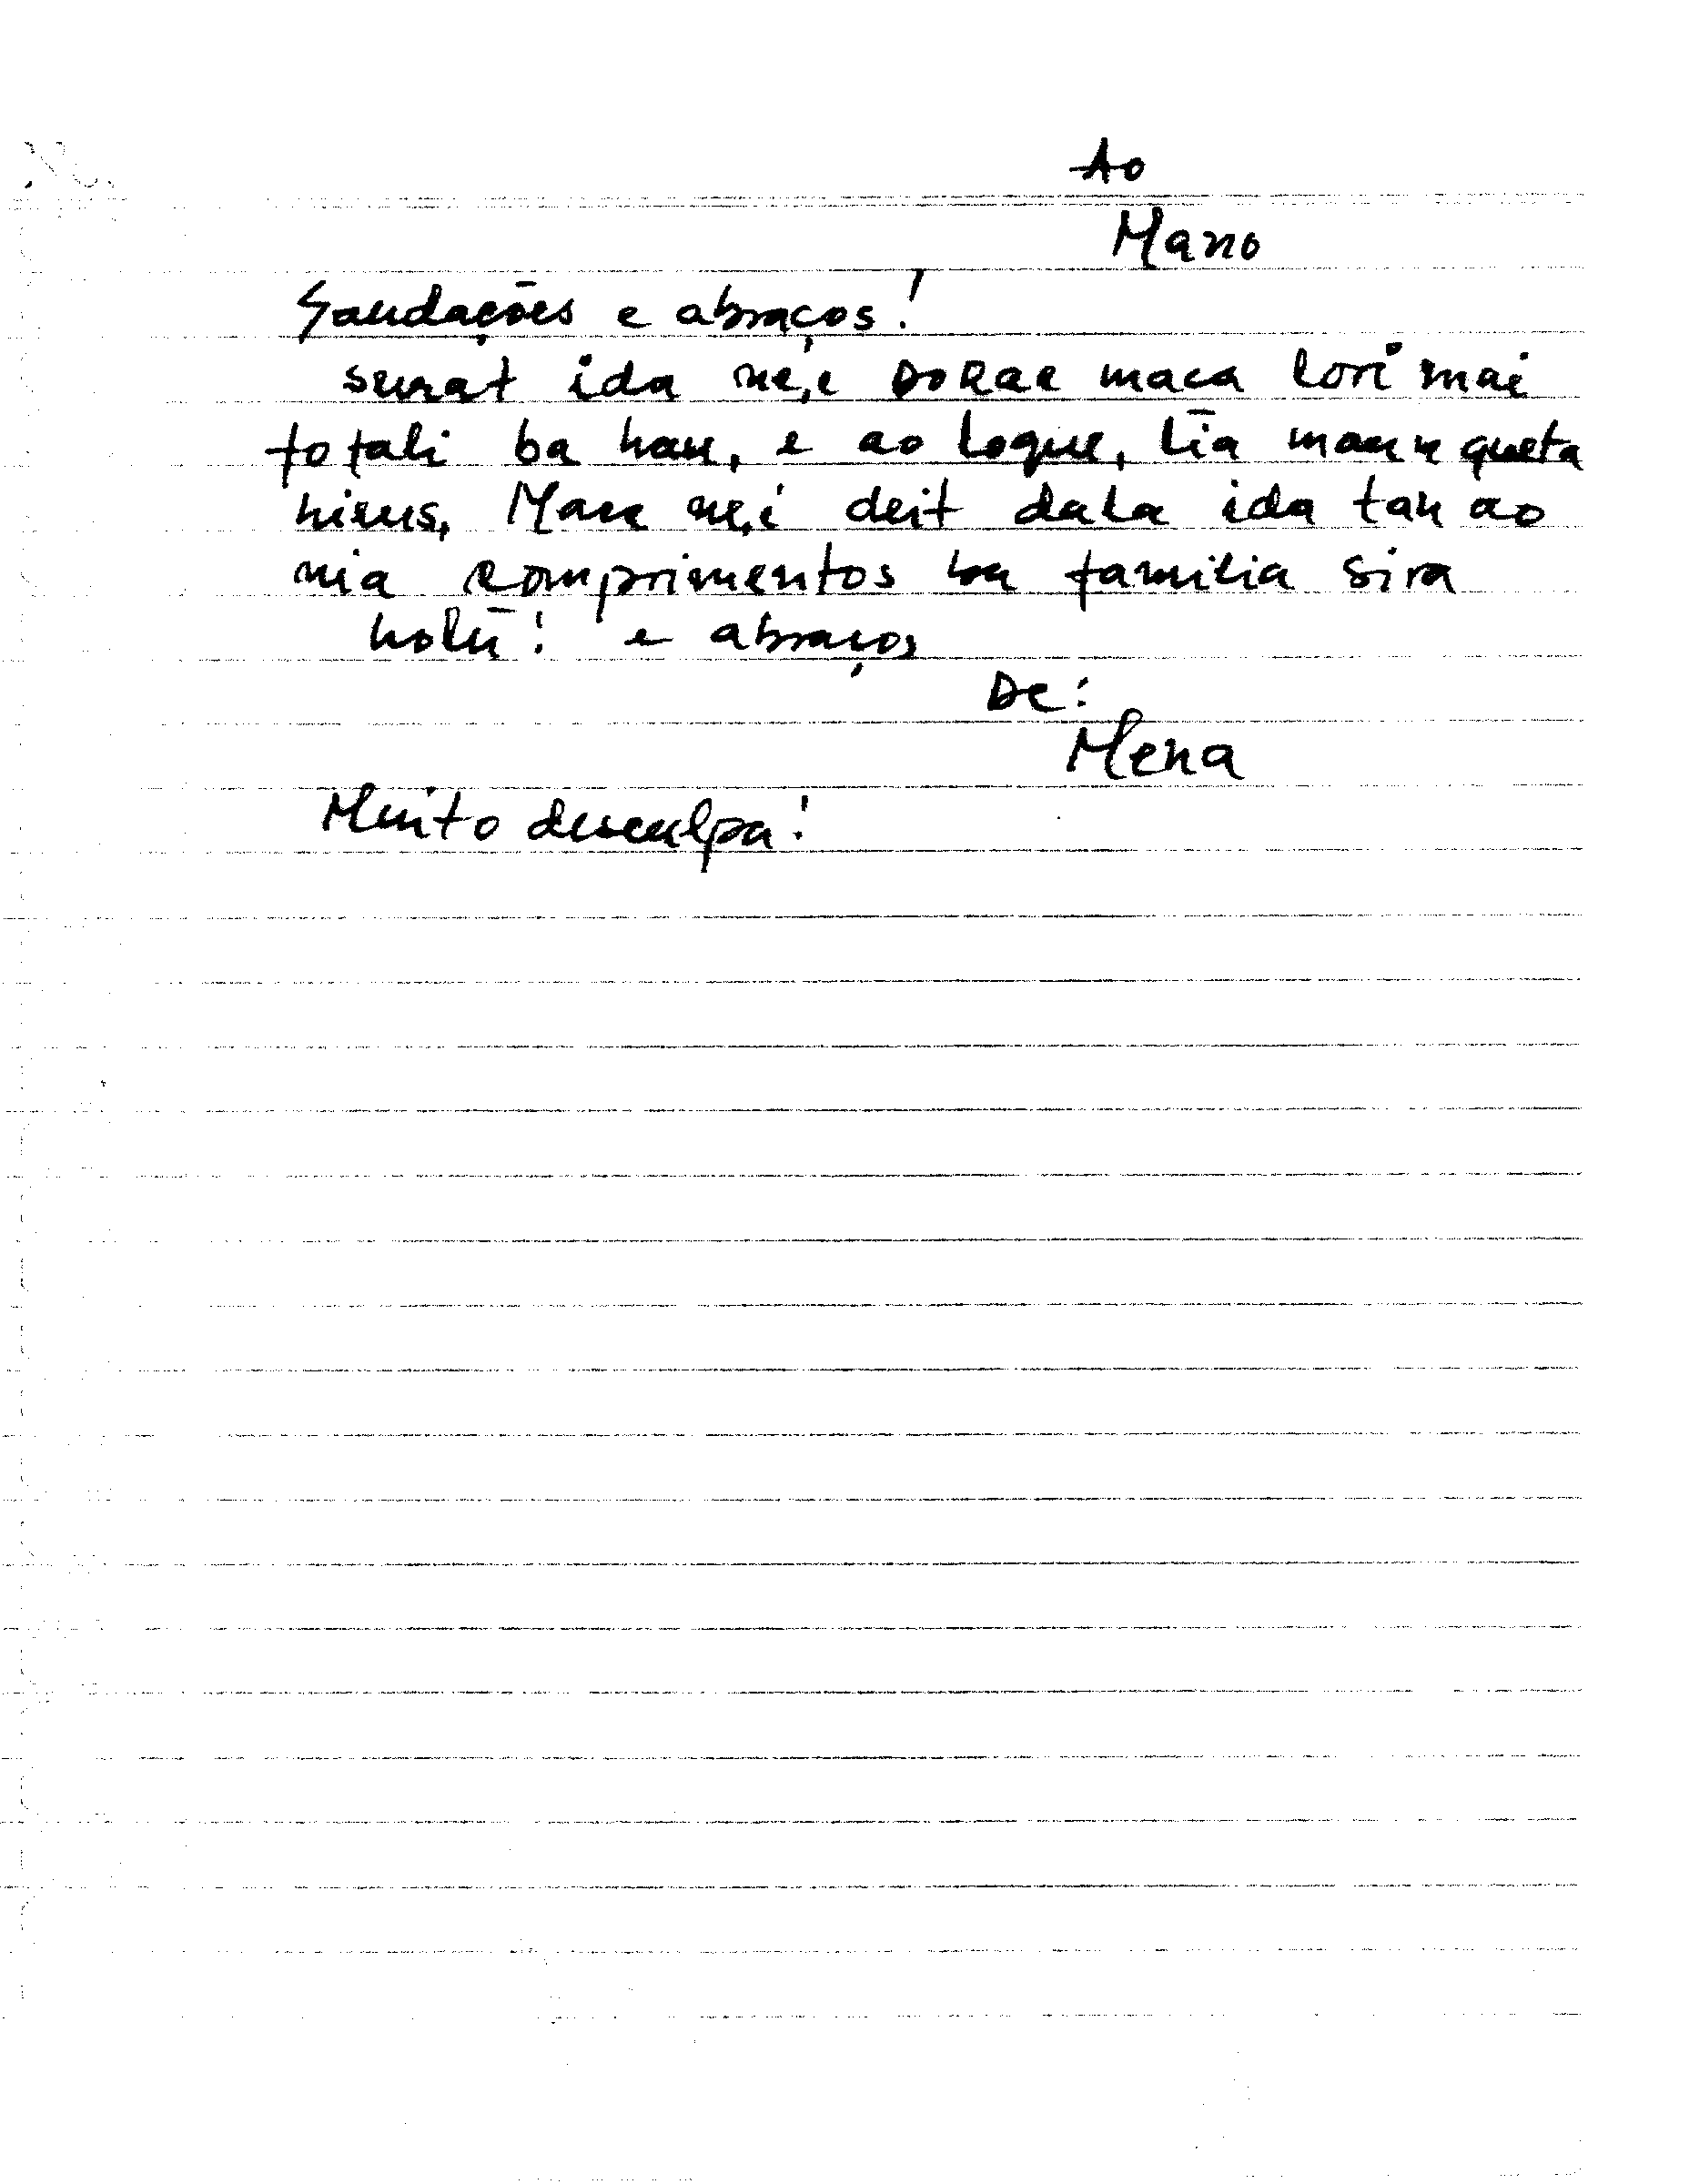 Ao
Mano
Saudações e abraços!
surat ida ne,e DORAE maca lori mai
fo fali ba hau, e ao loque, lia maun queta
hirus, Mas ne,i deit dala ida tan ao
nia comprimentos ba familia sira
hotū! e abraços
De:
Mena
Muito desculpa!